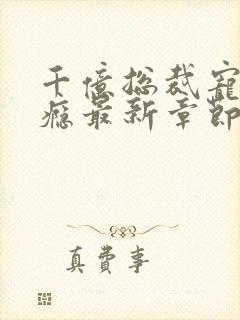 千億総裁寵
癮最新章節
真費事